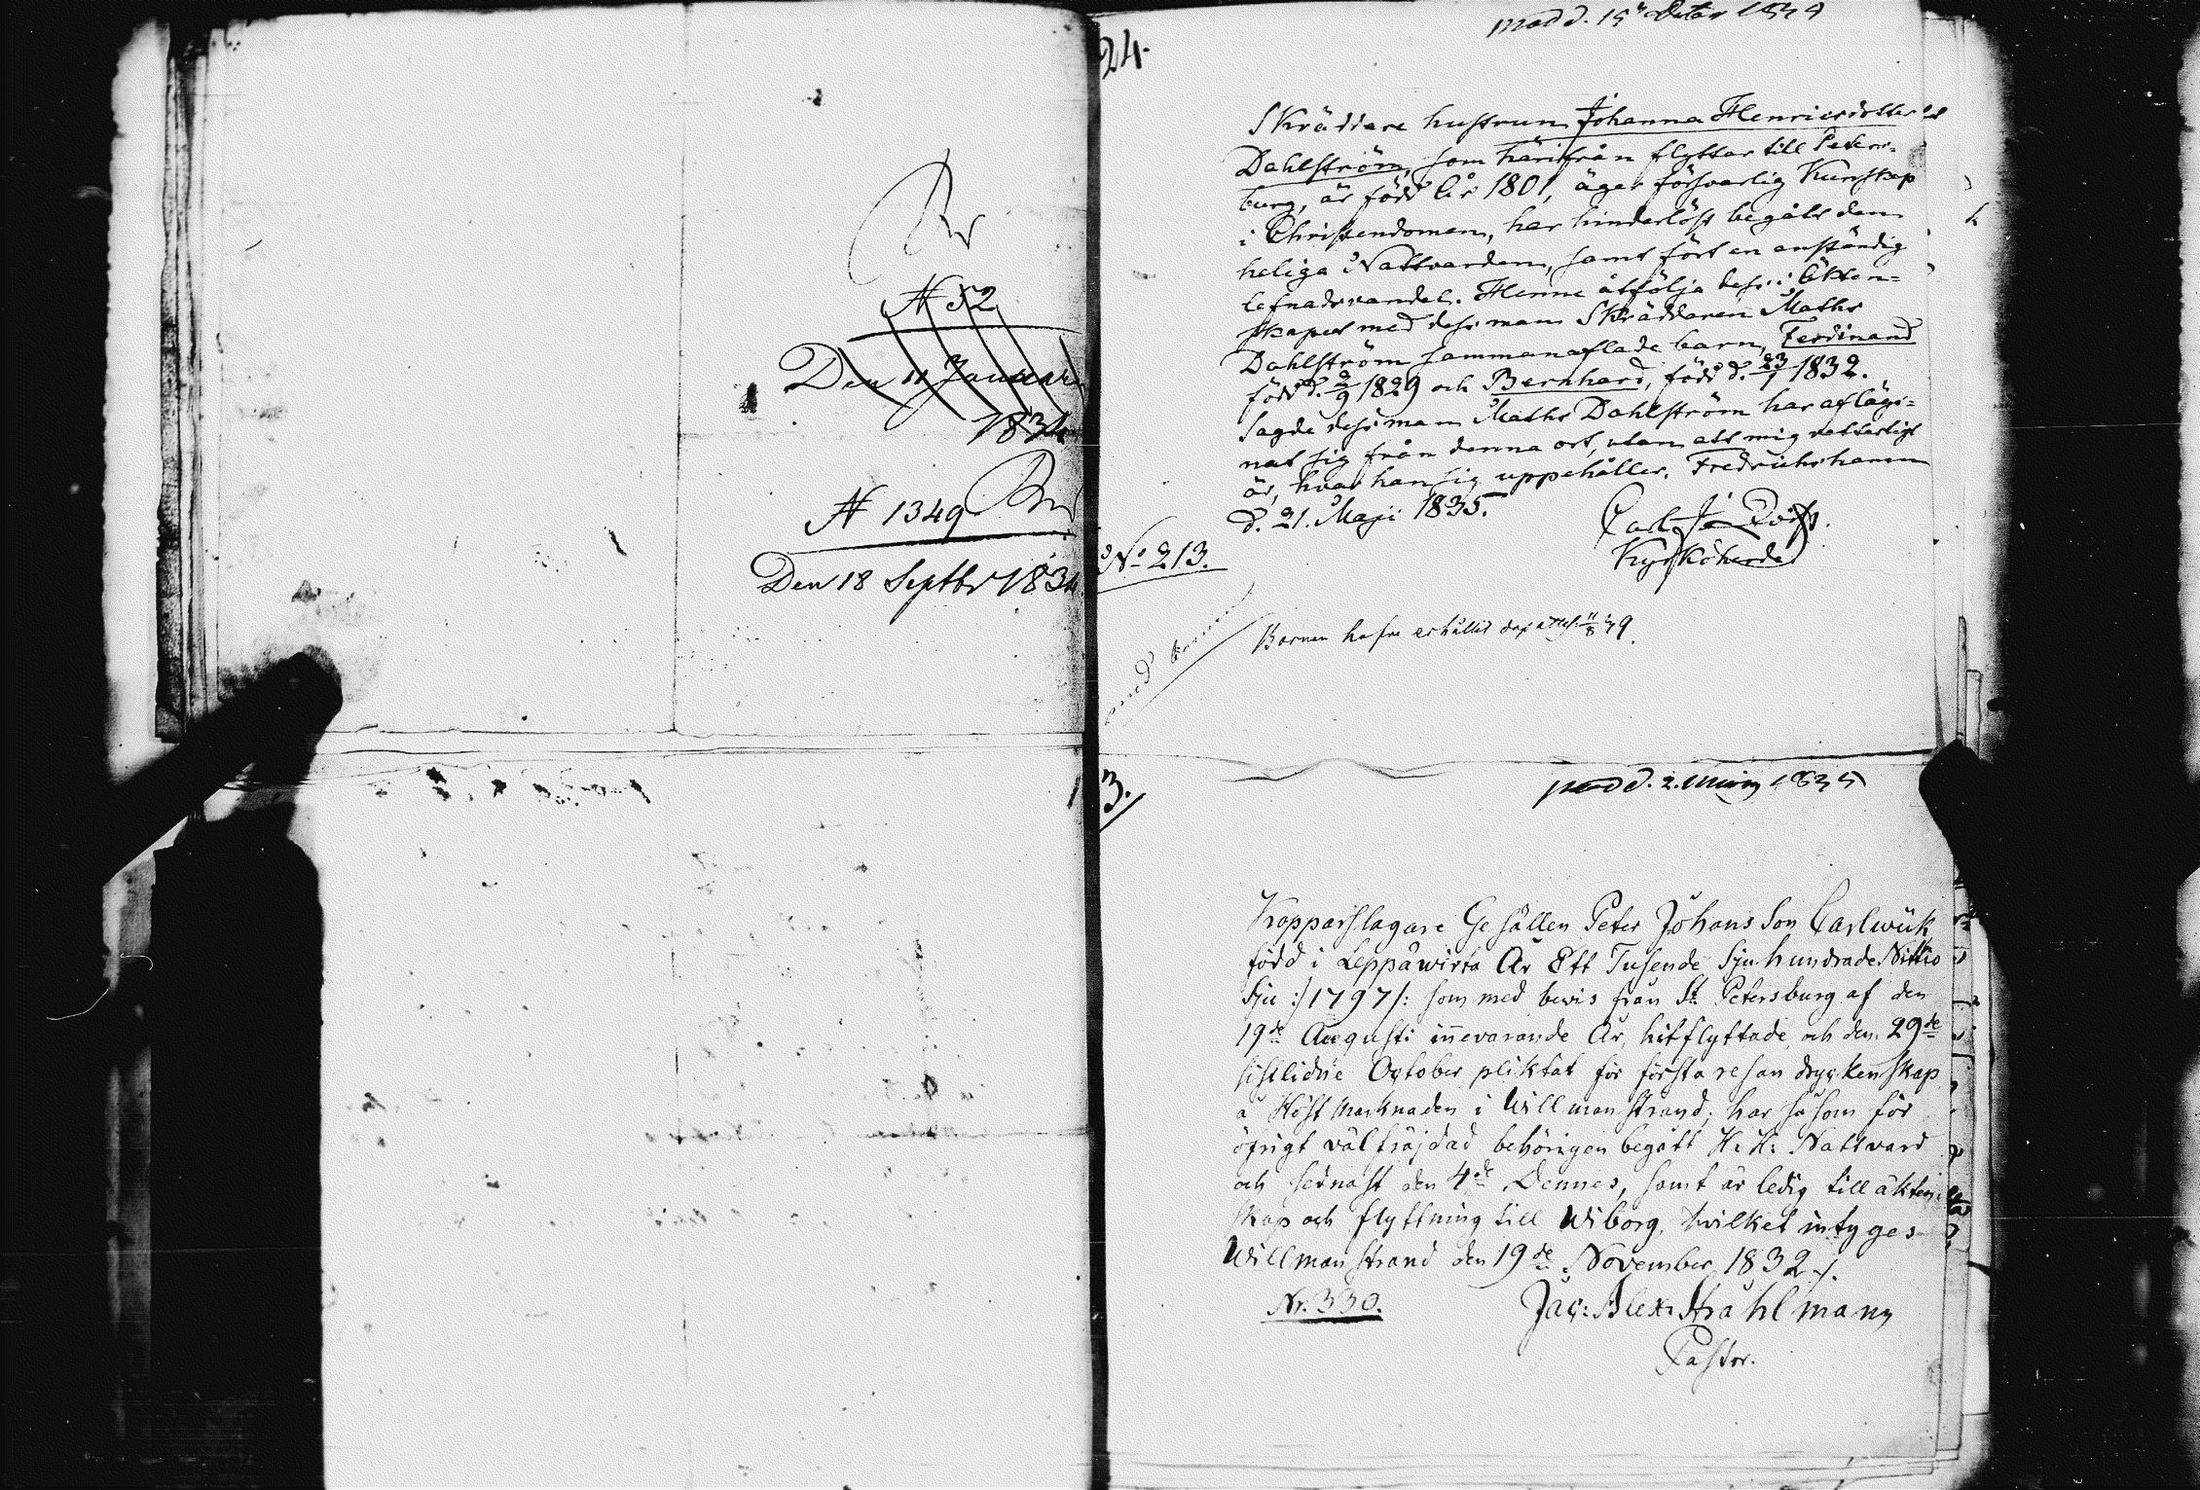 N 52
Den 11 Januar
1834
N 1349
Den 18 Septbr 1834
24.
Skräddare hustrun Johanna Henricsdotter
Dahlström, som härifrån flyttar till Peters-
burg, är född år 1801, äger försvarlig Kunskap
i Christendomen, har hinderlöst begått den
heliga Nattvarden, samt fört en anständig
lefnadsvandel. Henne åtfölja dess i äkten-
skapet med dess man Skräddaren Maths
Dahlström sammanaflade barn, Ferdinand
född d. 2/9 1829 och Bernhard, född d. 23/1 1832.
Sagde dess man Maths Dahlström har aflägs-
nat sig från denna ort, utan att mig vetterligt
är, hvar han sig uppehåller. Fredrichshamn
d. 21. Maji 1835.
Carl J
Kyrkoherde
No 213.
Barnen hafva erhållit 11/8 39.
3.
prod d. 2. 1835
Kopparslagare Gesällen Peter Johansson Carlwik
född i Leppäwirta År Ett Tusende Sju hundrade Nittio
Sju :/1797/: som med bevis från St Petersburg af den
19de Augusti innevarande År, hitflyttade, och den 29de
sistlidne October pliktat för första resan dryckenskap
å Höst Marknaden i Willmanstrand; har såsom för
öfrigt välfräjdad behörigen begått H. H. Nattvard
och sednast den 4de Dennes, samt är ledig till äkten-
skap och flyttning till Wiborg, hvilket intyges
Willmanstrand den 19de November 1832 /.
Nr. 330.
Jac: Alex: Strahlmann
Pastor.